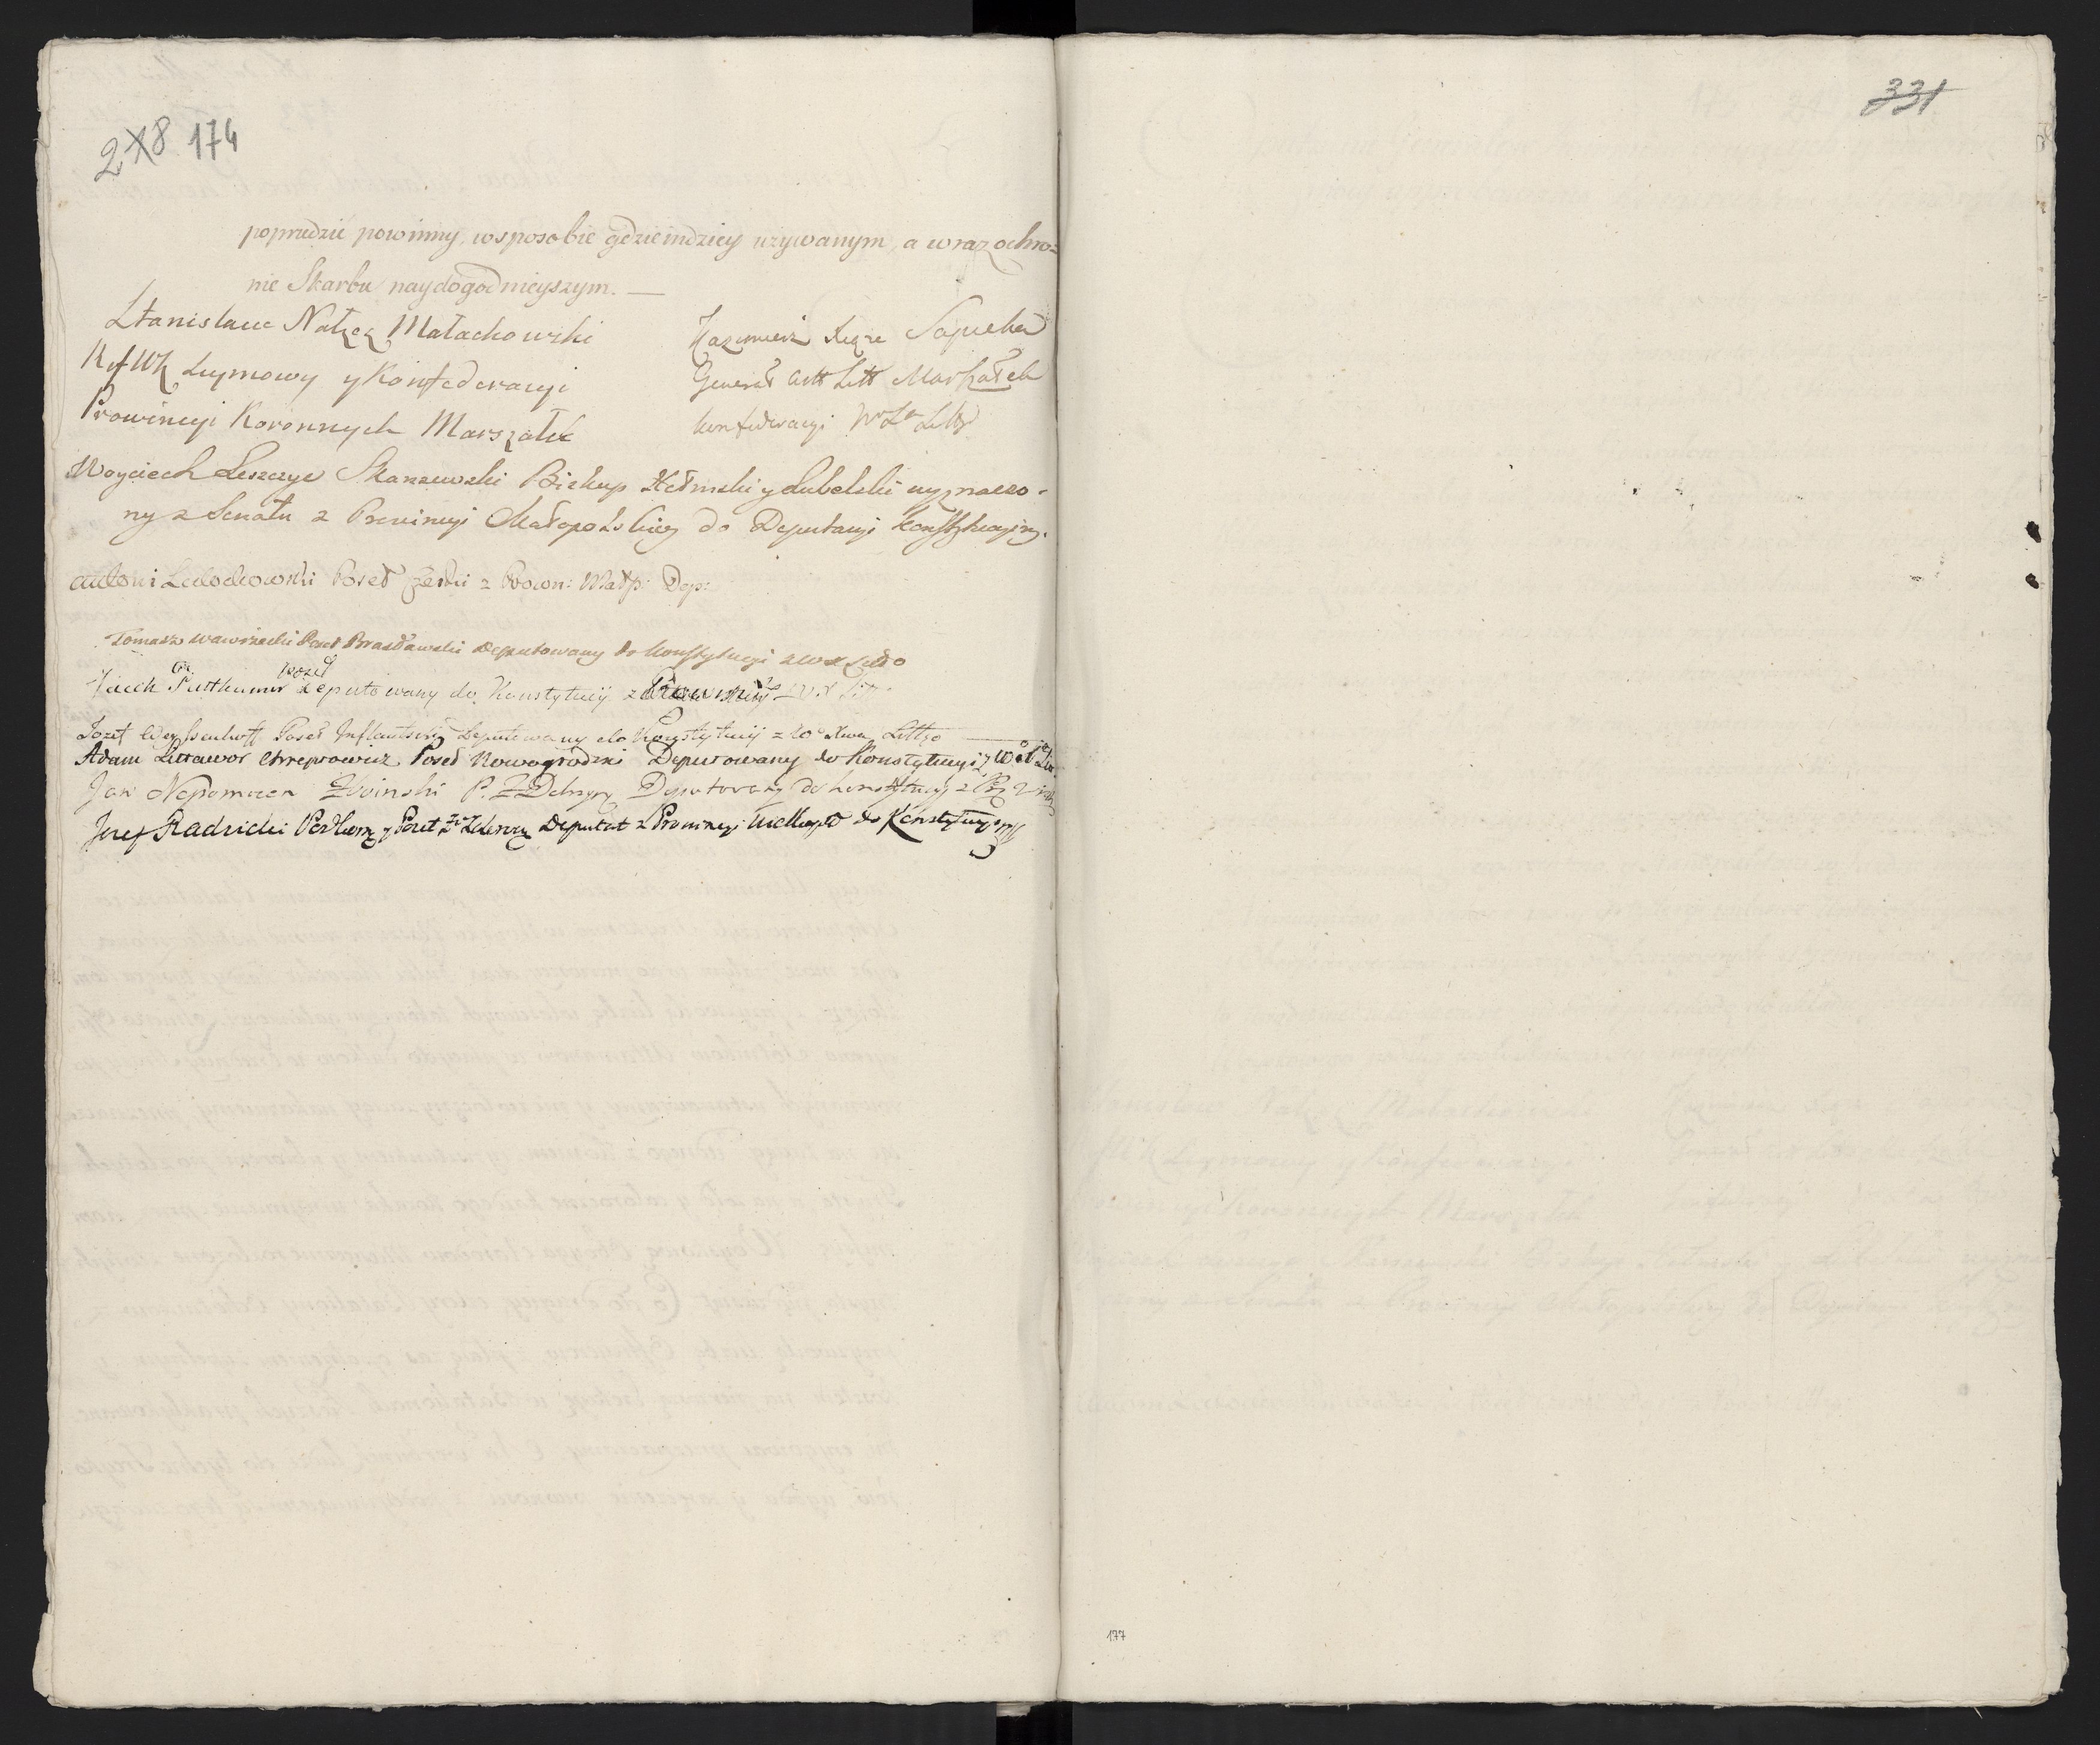 278 174
331
poprzedzić powinny, w sposobie gdzieindziey używanym, a wraz ochro=
nie Skarbu naydogodnieyszym. —
Stanisław Nałęcz Małachowski
R W K Seymowy y Konfederacyi
Prowincyi Koronnych Marszałek
Kazimierz Xiąże Sapieha
Generał Artt Litt Marszałek
Konfederacyi W Xa Litt
Woyciech Leszczyc Skarszewski Biskup Chełmski y Lubelski wyznaczo-
ny z Senatu z Prowincyi Małopolskiey do Deputacyi Konstytucyiney.
Antoni Ledochowski Poseł Czerski z Prown: Małp: Dep:
Tomasz Wawrzecki Poseł Brasławski Deputowany do Konstytucyi z W X Litto
Jacek Puttkamer Poseł Deputowany do Konstytucij z Prowincyi W X Litt.
Jozef Weyssenhoff Poseł Inflantski Deputowany do Konstytucij z Wo Xtwa Littgo
Adam Chreptowicz Poseł Nowogrodzki Deputowany do Konstytucyi z W X Litt.
Jan Nepomucen Zboinski P. Z Dobrzyn Deputowany do Konstytucyi z
Jozef Radzicki Podkom y Poseł Zi Zakroczy Deputat z Prowincyi Wielkopo do Konstytucyi
177